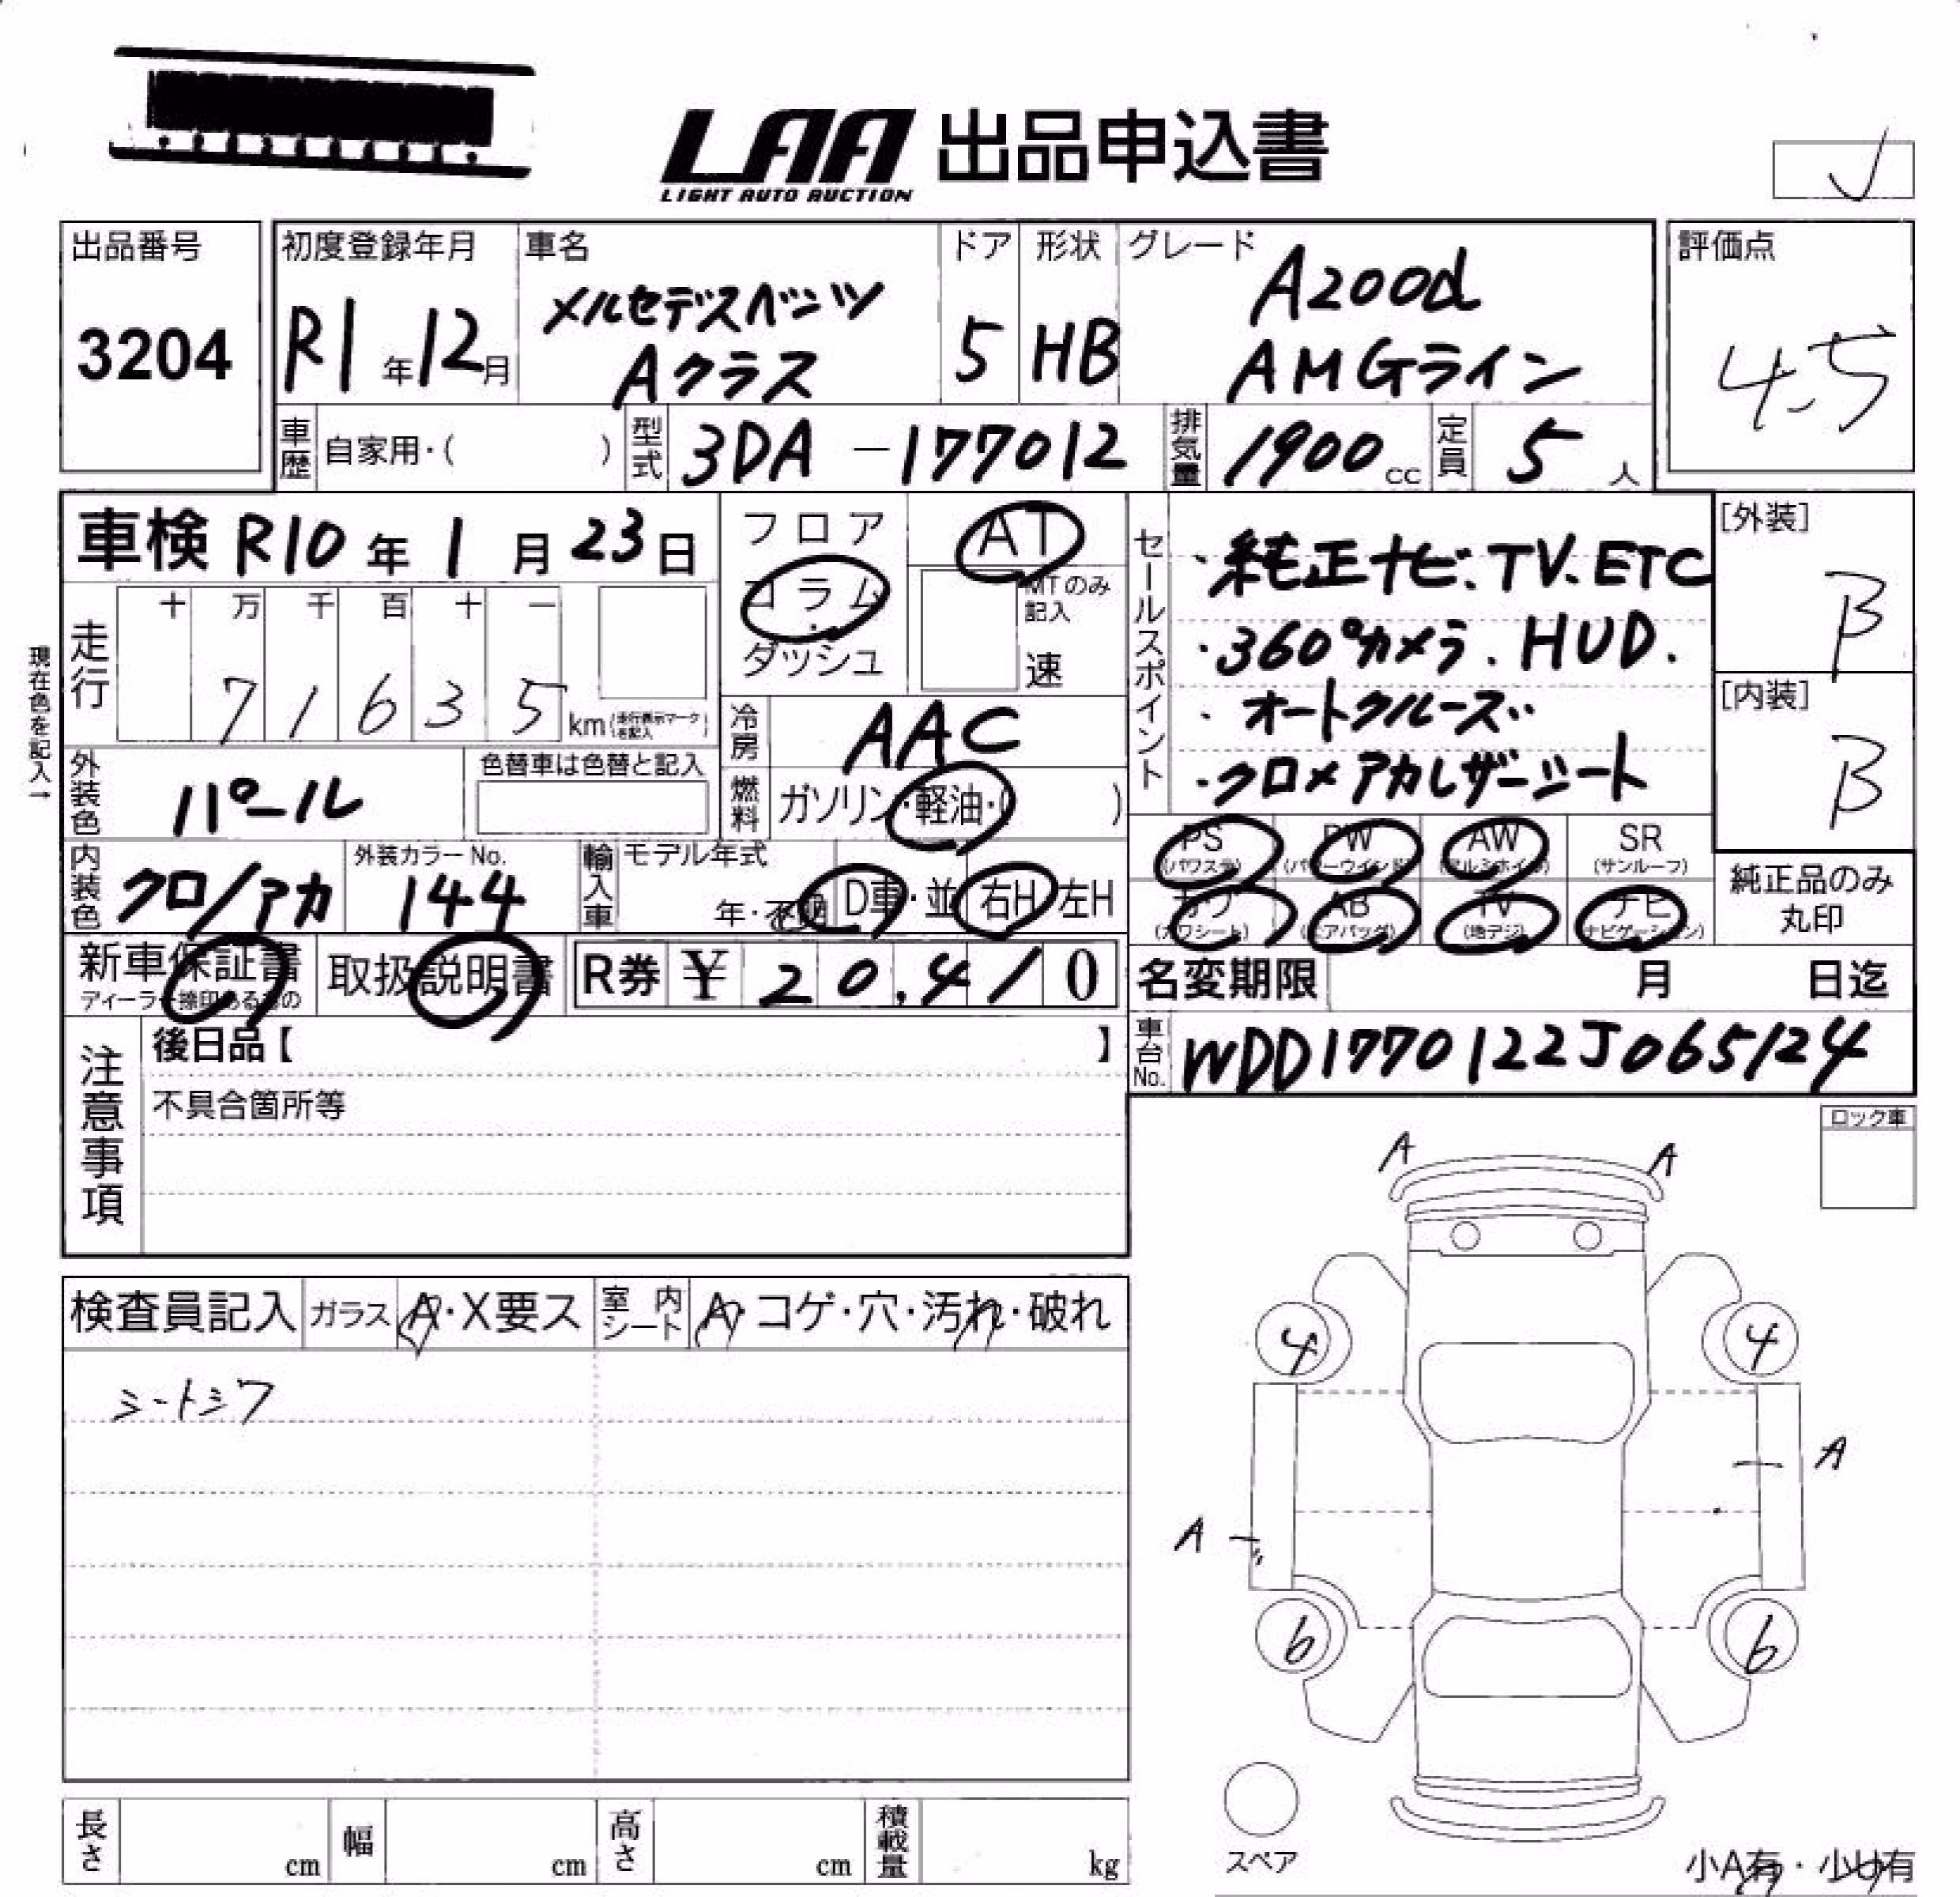 LAA 出品申込書
LIGHT AUTO AUCTION
出品番号
3204
初度登録年月
R1年12月
車名
メルセデスベンツ
Aクラス
ドア
5
形状
HB
グレード
A200d
AMGライン
評価点
4.5
車歴 自家用・( )
型式 3DA-177012
排気量 1900cc
定員 5人
車検 R10年1月23日
現在色を記入→
走行
十 万 千 百 十 一
7 1 6 3 5 km
(走行表示マークを記入)
フロア
コラム
ダッシュ
AT
MTのみ
記入
速
冷房 AAC
燃料 ガソリン・軽油・( )
外装色 パール
色替車は色替と記入
内装色 クロ/アカ
外装カラーNo.
144
輸入車
モデル年式
年・不明
D車・並
右H 左H
新車保証書
ディーラー捺印あるもの
取扱説明書
R券 ¥20,4/0
セールスポイント
・純正ナビ、TV、ETC
・360°カメラ、HUD.
・オートクルーズ
・クロ×アカレザーシート
[外装]
B
[内装]
B
PS
(パワステ)
PW
(パワーウインド)
AW
(アルミホイル)
SR
(サンルーフ)
カワ
(カワシート)
AB
(エアバッグ)
TV
(地デジ)
ナビ
(ナビゲーション)
純正品のみ
丸印
名変期限 月 日迄
車台No. WDD1770122J065124
注意事項
後日品【 】
不具合箇所等
ロック車
検査員記入
ガラス A・X要ス
室内シート A・コゲ・穴・汚れ・破れ
シートシワ
A A
4 4
A
A
6 6
スペア
小A有・小U有
長さ cm
幅 cm
高さ cm
積載量 kg